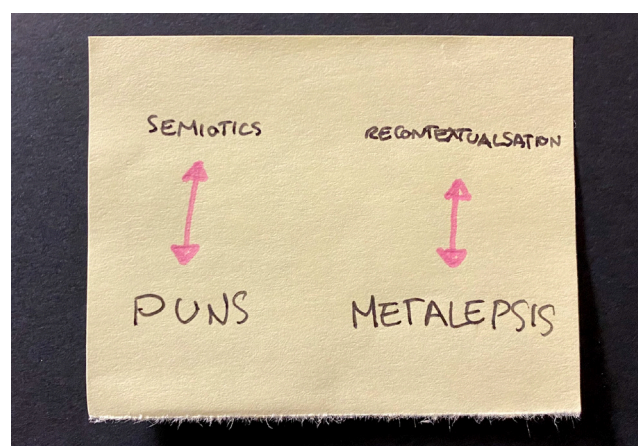 SEMIOTICS
RECONTEXTUALSATION
PUNS
METALEPSIS